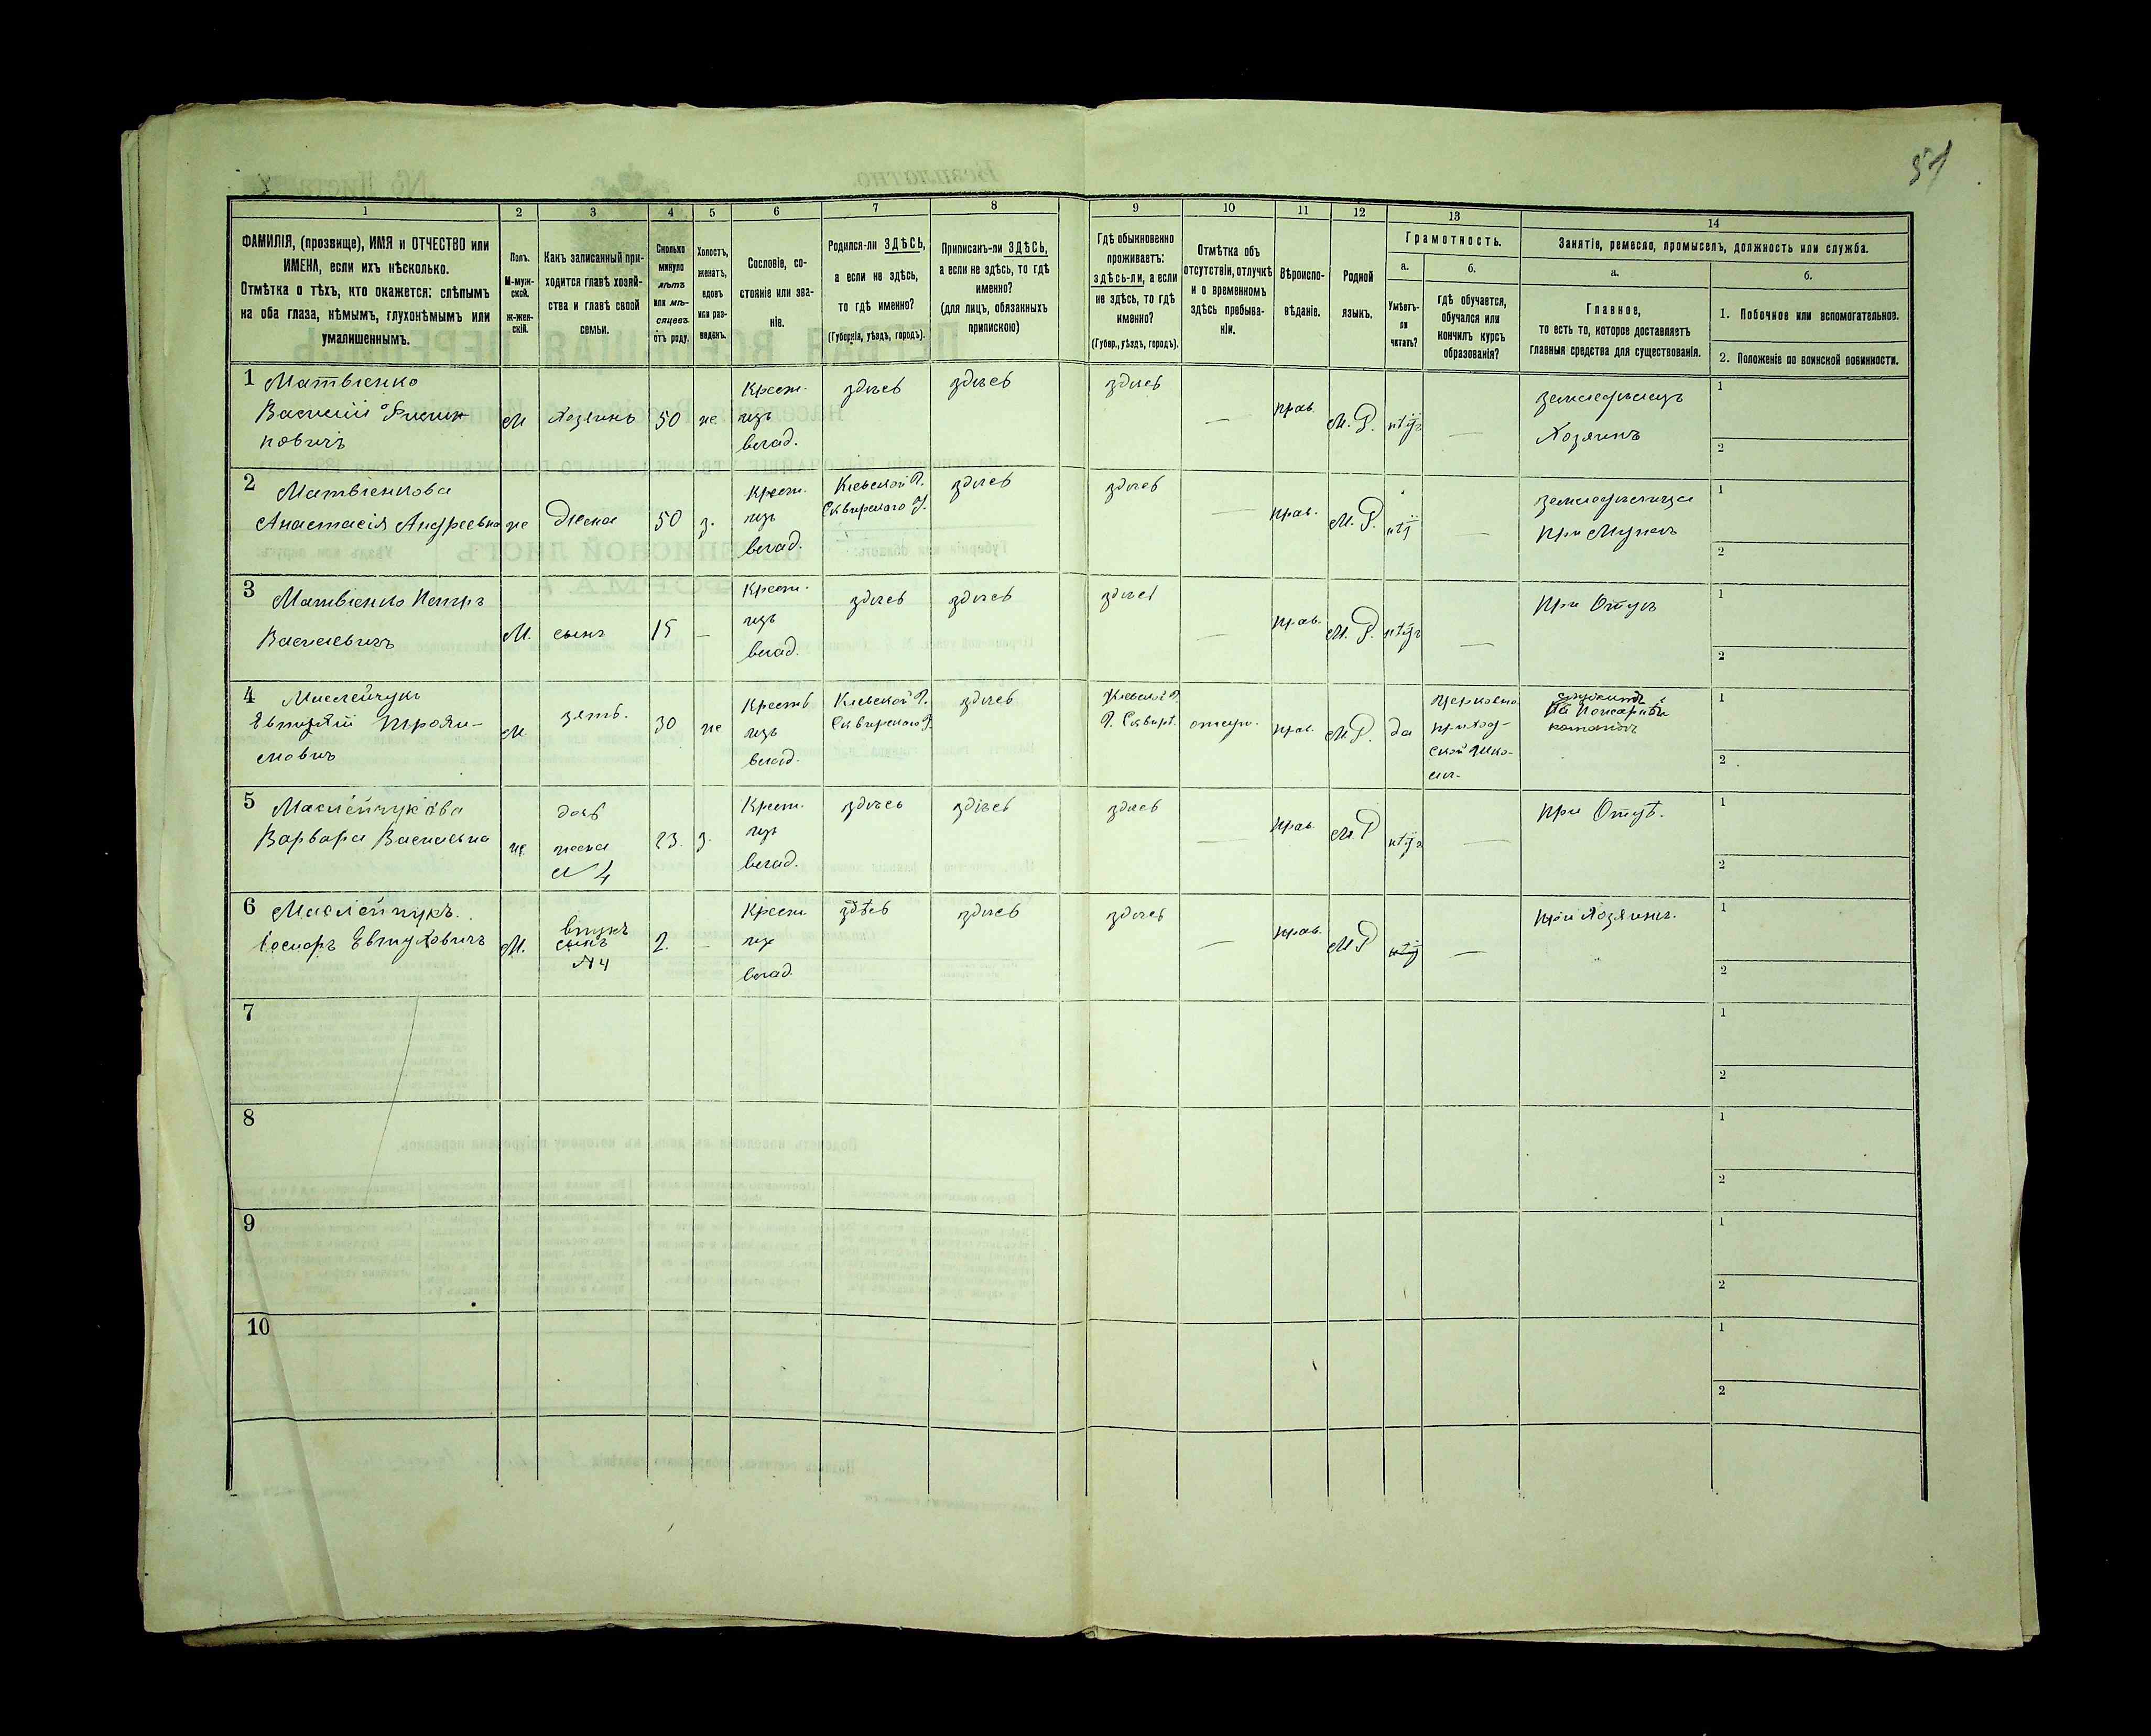 51
1
2
3
4
5
6
7
8
9
10
11
12
13
14
ФАМИЛІЯ, (прозвище), ИМЯ и ОТЧЕСТВО или
ИМЕНА, если ихъ нѣсколько.
Отмѣтка о тѣхъ, кто окажется: слѣпымъ
на оба глаза, нѣмымъ, глухонѣмымъ или
умалишеннымъ.
Полъ.
М-муж-
ской.
ж-жен-
скій.
Какъ записанный при-
ходится главѣ хозяй-
ства и главѣ своей
семьи.
Сколько
минуло
лѣтъ
или мѣ-
сяцевъ
отъ роду.
Холостъ,
женатъ,
вдовъ
или раз-
веденъ.
Сословіе, со-
стояніе или зва-
ніе.
Родился-ли ЗДѢСЬ,
а если не здѣсь,
то гдѣ именно?
(Губернія, уѣздъ, городъ).
Приписанъ-ли ЗДѢСЬ,
а если не здѣсь, то гдѣ
именно?
(для лицъ, обязанныхъ
припискою)
Гдѣ обыкновенно
проживаетъ:
здѣсь-ли, а если
не здѣсь, то гдѣ
именно?
(Губер., уѣздъ, городъ).
Отмѣтка объ
отсутствіи, отлучкѣ
и о временномъ
здѣсь пребыва-
ніи.
Вѣроиспо-
вѣданіе.
Родной
языкъ.
Грамотность.
а.
Умѣетъ-
ли
читать?
б.
гдѣ обучается,
обучался или
кончилъ курсъ
образованія?
Занятіе, ремесло, промыселъ, должность или служба.
а.
Главное,
то есть то, которое доставляетъ
главныя средства для существованія.
б.
1. Побочное или вспомогательное.
2. Положеніе по воинской повинности.
1 Матвіенко
Василій Филип
повичъ
М
Хозяинъ
50
же
Крест.
изъ
влад.
здѣсь
здѣсь
здѣсь
—
прав.
М. Р.
нѣтъ
—
земледѣлецъ
Хозяинъ
1
2
2 Матвіенкова
Анастасія Андреевна
же
Жена
50
з.
Крест.
изъ
влад.
Кіевской Г.
Сквирского У.
здѣсь
здѣсь
—
прав.
М. Р.
нѣтъ
—
земледѣлица
при Мужѣ
1
2
3 Матвіенко Петръ
Васильевичъ
М.
сынъ
15
—
Крест.
изъ
влад.
здѣсь
здѣсь
здѣсь
—
прав.
М. Р.
нѣтъ
—
при Отцѣ
1
2
4
М
зять.
30
же
Крест
изъ
влад.
Кіевской Г.
Сквирского У.
здѣсь
Кіевской Г.
отсут.
прав.
М. Р.
да
Церковно
приход-
ской шко-
лѣ
служитъ
командѣ
1
2
5
Варвара Васильевна
же
дочь
жена
№ 4
23.
з.
Крест.
изъ
влад.
здѣсь
здѣсь
здѣсь
—
прав.
М. Р
нѣтъ
—
при Отцѣ.
1
2
6
М.
внукъ
сынъ
№ 4
2.
—
Крест.
изъ
влад.
здѣсь
здѣсь
здѣсь
—
прав.
М Р
нѣтъ
—
при Хозяинѣ.
1
2
7
1
2
8
1
2
9
1
2
10
1
2